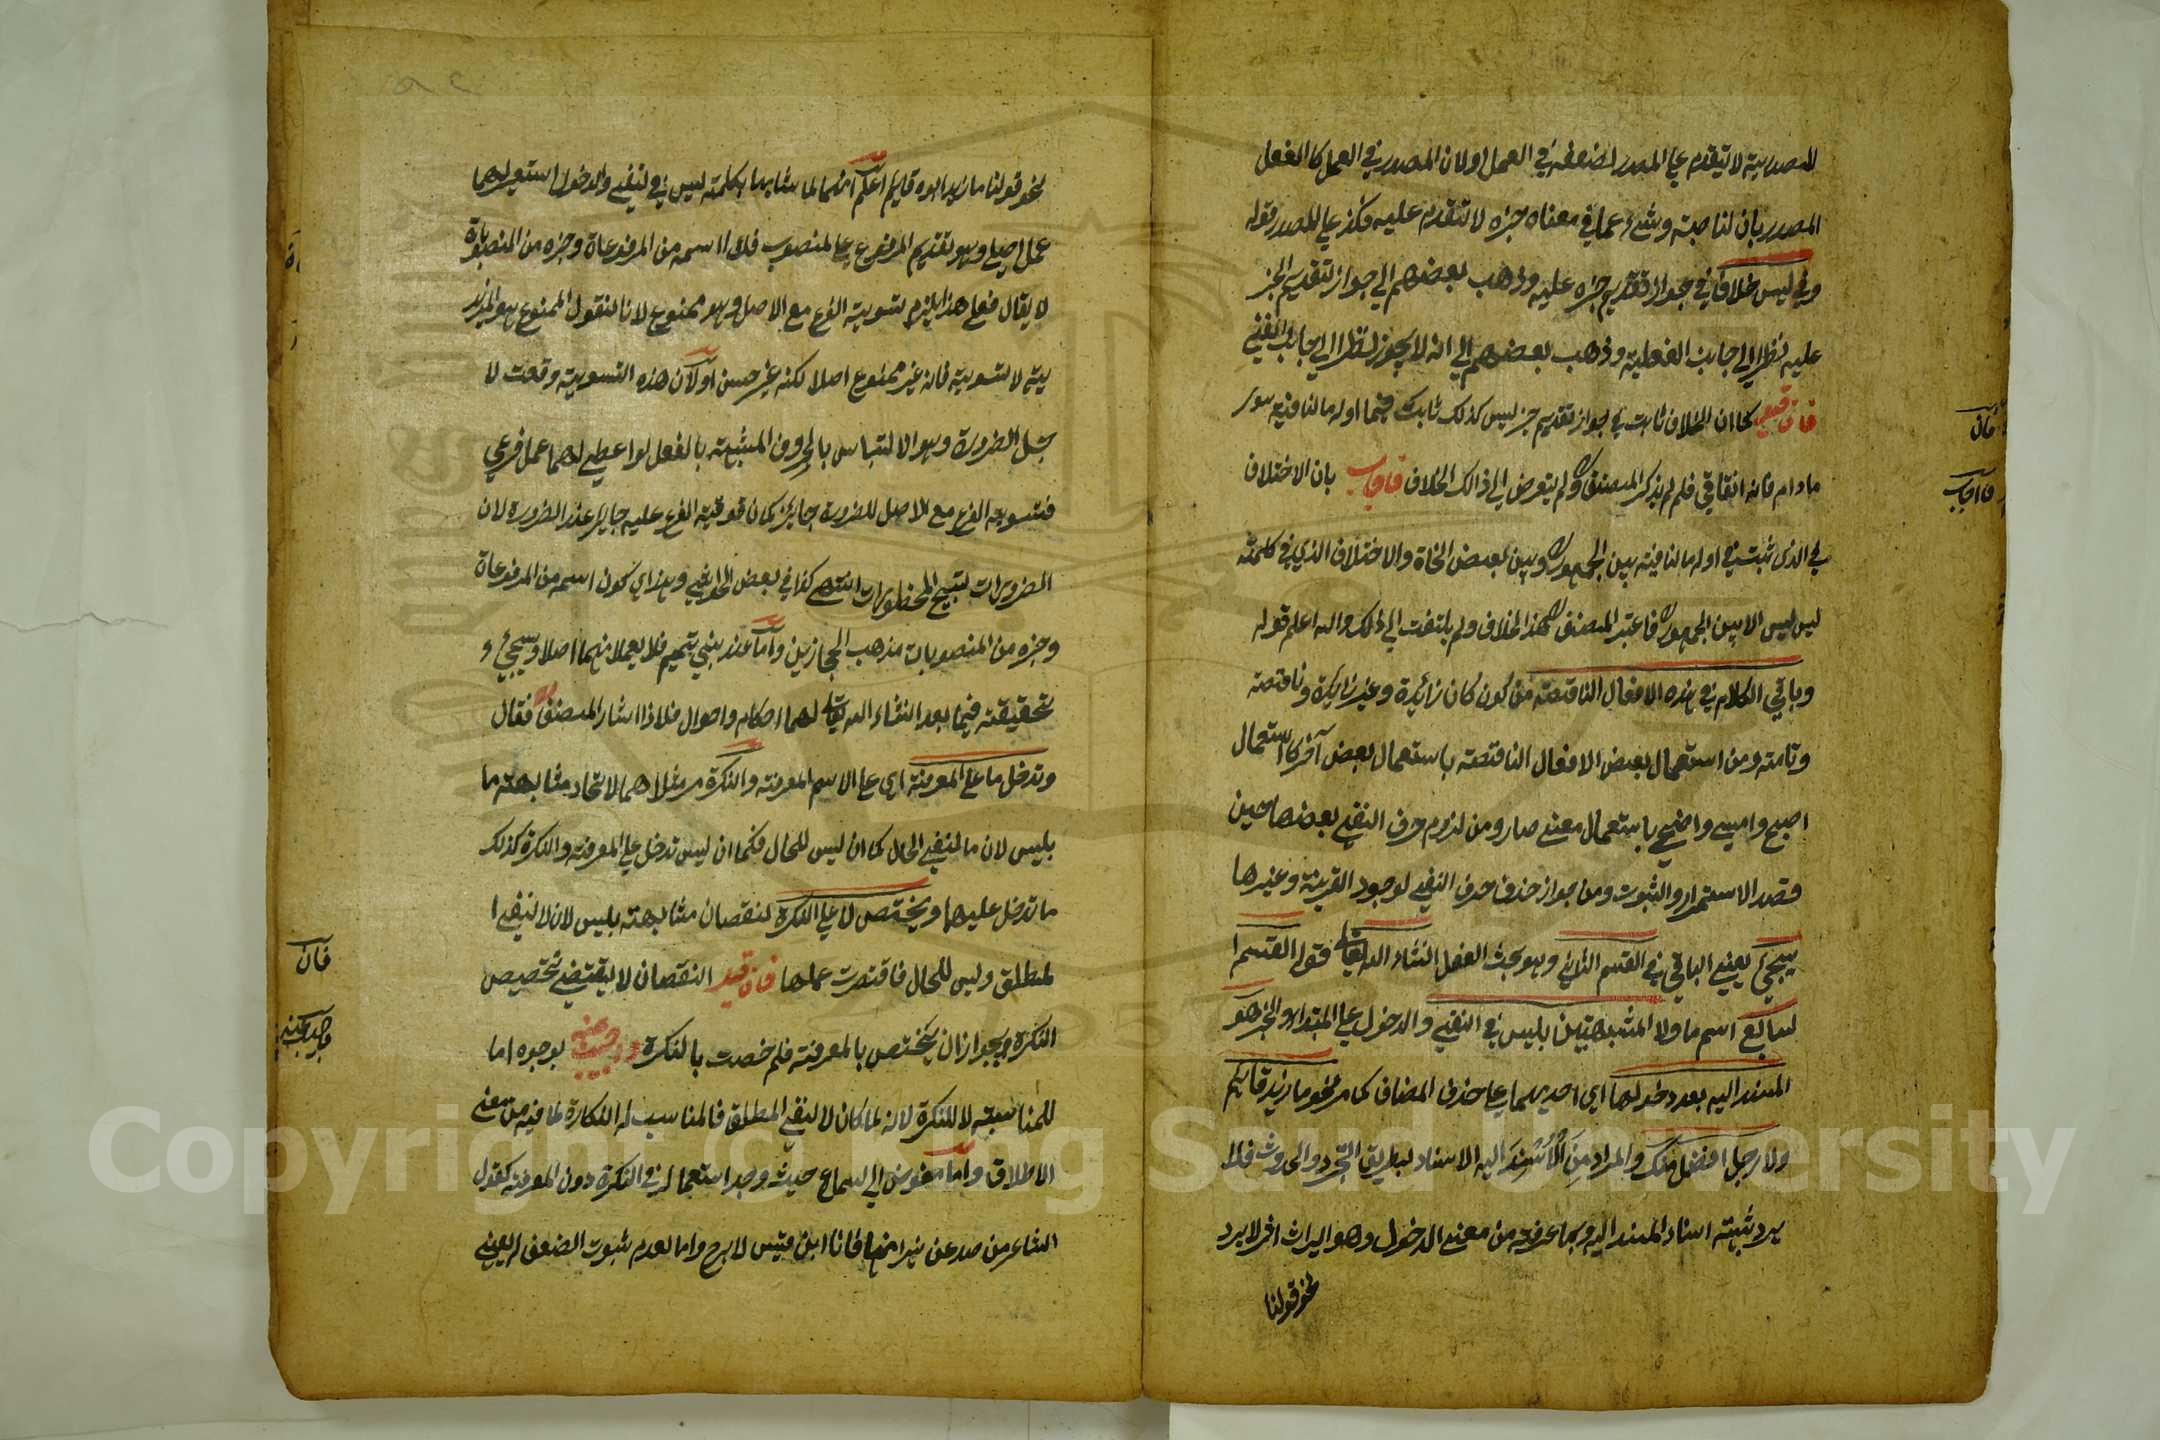 للمصدرية لا يتقدم علي المصدر لضعفه في العمل اولان المصدر في العمل كالفعل
المصدر بان لناصبة وشيء مما في معناه جزه لا تتقدم عليه وكذ علي المصدر قوله
وفي ليس خلاف في جواز تقديم جزه عليه وذهب بعضهم الي جواز تقديم الجز
عليه نظرا الي جانب الفعلية وذهب بعضهم الي انه لا يجوز نظرا الي جانب النفي
فان قيل كما ان الخلاف ثابت في جواز تقديم جز ليس كذلك ثابت فيما اوله ما لنافية سوى
مادام فانه اتفاقي فلم لم يذكر المصنف ولم يتعرض الي ذالك الخلاف فاجاب بان الاختلاف
في الذي ثبت في اوله ما لنافية بين الجمهور وبين بعض النحاة والاختلاف الذي في كلمة
ليس ليس الا بين الجمهور فاعتبر المصنف هذا الخلاف ولم يلتفت الي ذلك والله اعلم قوله
وباقي الكلام في هذه الافعال الناقصة من كون كان زائدة وغير زايدة وناقصة
وتامة ومن استعمال بعض الافعال الناقصة باستعمال بعض آخر كاستعمال
اصبح وامسي واضحي باستعمال معنى صار ومن لزوم حرف النفي بعضها حين
قصد الاستمرار والثبوت ومن جواز حذف حرف النفي لوجود القرينة وغيرها
سيجيء يعني الباقي في القسم الثاني وهو بحث الفعل انشاء الله تعالى قوله القسم ا
لسابع اسم ما ولا المشبهتين بليس في النفي والدخول علي المبتداء والخبر هو
المسند اليه بعد دخولها اي احديهما علي حذف المضاف كما مر نحو ما زيد قايم
ولا رجل افضل منك والمراد من المسند اليه الاسناد بطريق التجرد والحدوث فلا
يرد ثبته اسناد المسند اليه وبما عرفته من معنى الدخول وهو ايراث اثر لا يرد
نحو قولنا
نحو قولنا ما زيد ابوه قايم اعلم انهما لما شابها بكلمة ليس في لنفي والدخول استعير لهما
عمل اصلي وهو تقديم المرفوع علي المنصوب فلذا اسمه من المرفوعات وجزه من المنصوبات
لا يقال فعلي هذا يلزم تسوية الفرع مع الاصل وهو ممنوع لانا نقول الممنوع هو المزيد
يية لا تسوية فانه غير ممنوع اصلا لكنه غير حسن اولان هذه التسوية وقعت لا
جل الضرورة وهو الالتباس بالحروف المشبهة بالفعل لو اعطي لهما عمل فرعي
فتسوية الفرع مع الاصل للضرورة جايز كما ان فوقية الفرع عليه جايز عند الضرورة لان
الضرورات تبيح المحظورات انتهى كذا في بعض الحواشي وهذا اي كون اسمه من المرفوعات
وجزه من المنصوبات مذهب الحجازيين واما عند بني تميم فلا يعملا منهما اصلا وسيجيء و
تحقيقه فيما بعد انشاء الله تعالى لهما احكام واحوال فلذا اشار المصنف فقال
وتدخل ما علي المعرفة اي علي الاسم المعرفة والنكرة مر مثلاهما لاتحاد مشابهة ما
بليس لان ما لنفي الحال كما ان ليس للحال فكما ان ليس تدخل علي المعرفة والنكرة كذلك
ما تدخل عليهما ويختص لا علي النكرة لنقصان مشابهته بليس لان لا لنفي ا
لمطلق وليس للحال فاقتصرت عملها فان قيل النقصان لا يقتضي تخصيص
النكرة ويجوز ان يختص بالمعرفة فلم خصت بالنكرة بوجوه اما
للمناسبة لا للنكرة لانه لما كان لا لنفي المطلق فالمناسب له النكارة لما فيه من معنى
الاطلاق واما مفوض الي السماع حيث وجد استعماله في النكرة دون المعرفة كقول
الشاعر من صد عن نيرانها فانا ابن قيس لا براح واما لعدم ثبوت الضعف له يعني
فان
فاجاب
فان